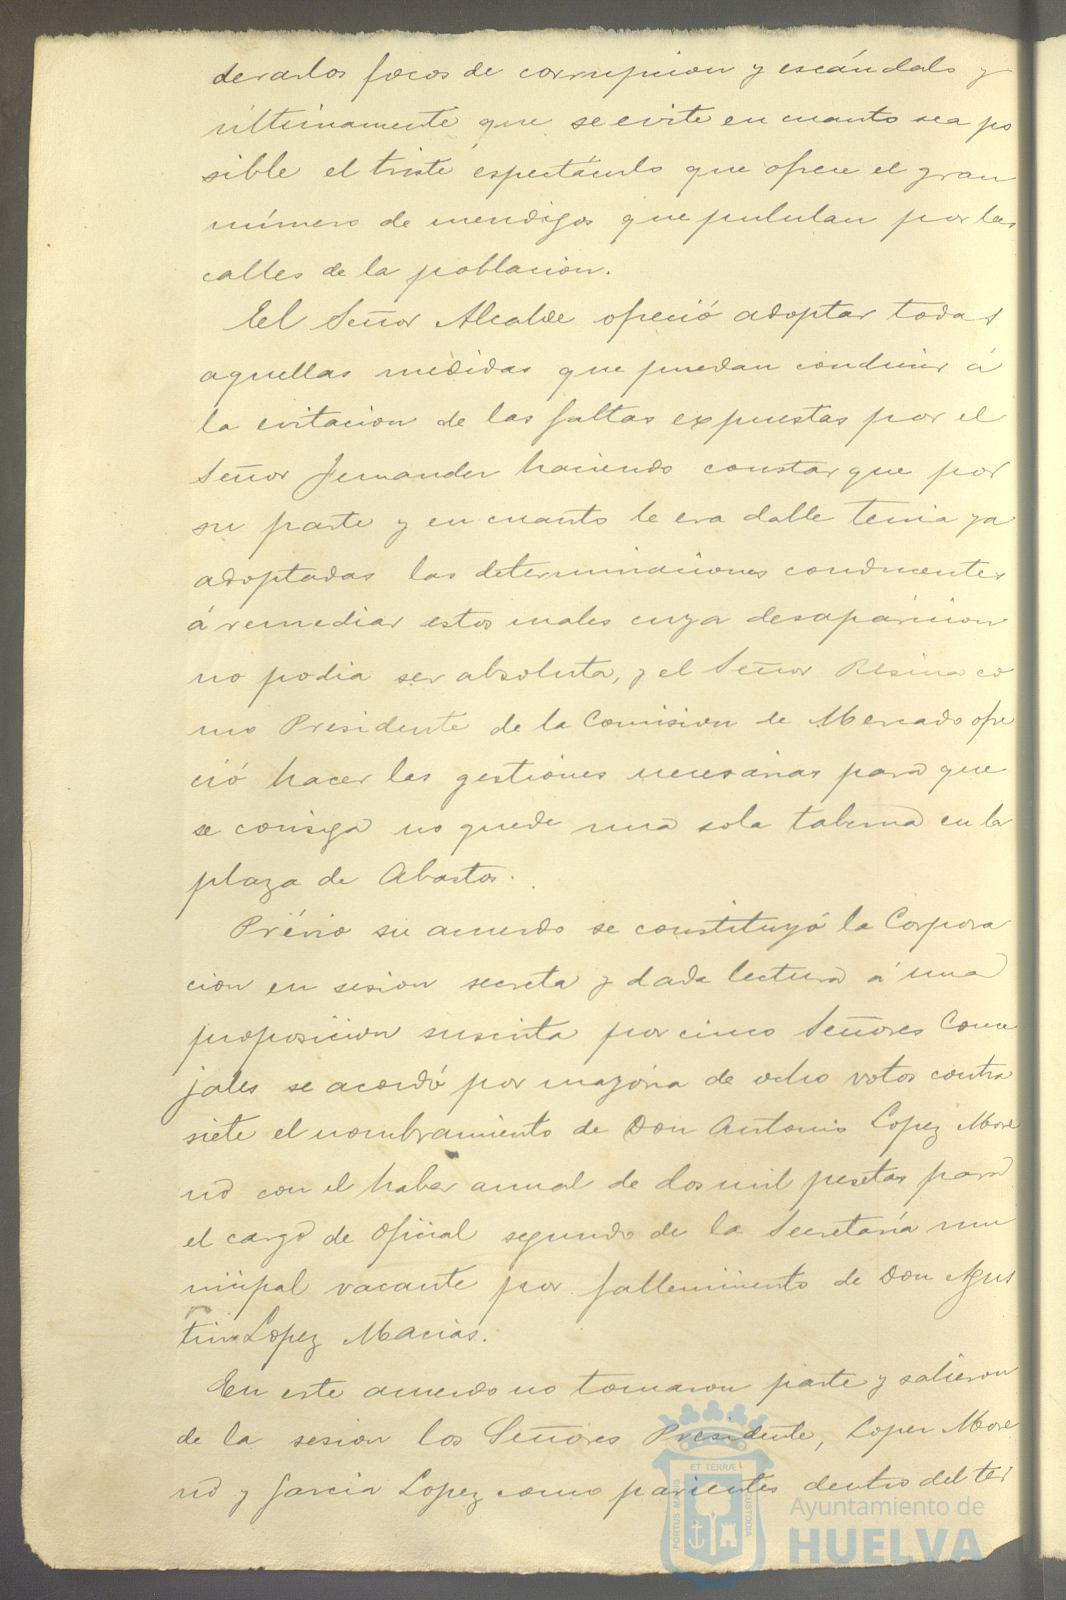 derarlos focos de corrupcion y escándalo y
últimamente que se evite en cuanto sea po
sible el triste espectáculo que ofrece el gran
número de mendigos que pululan por las
calles de la poblacion.
El Señor Alcalde ofreció adoptar todas
aquellas medidas que puedan conducir á
la evitacion de las faltas expuestas por el
Señor Fernandez haciendo constar que por
su parte y en cuanto le era dable tenia ya
adoptadas las determinaciones conducentes
á remediar estos males cuya desaparicion
no podia ser absoluta, y el Señor Resina co
mo Presidente de la Comision de Mercado ofre
ció hacer las gestiones necesarias para que
se consiga no quede una sola taberna en la
plaza de Abastos.
Prévio su acuerdo se constituyó la Corpora
cion en sesion secreta y dada lectura á una
proposicion suscrita por cinco Señores Conce
jales se acordó por mayoria de ocho votos contra
siete el nombramiento de Don Antonio Lopez More
no con el haber anual de dos mil pesetas para
el cargo de Oficial segundo de la Secretaría mu
nicipal vacante por fallecimiento de Don Agus
tin Lopez Macias.
En este acuerdo no tomaron parte y salieron
de la sesion los Señores Presidente, Lopez More
no y Garcia Lopez como parientes dentro del ter
ET TERRÆ
PORTUS MARIS
CUSTODIA
Ayuntamiento de
HUELVA